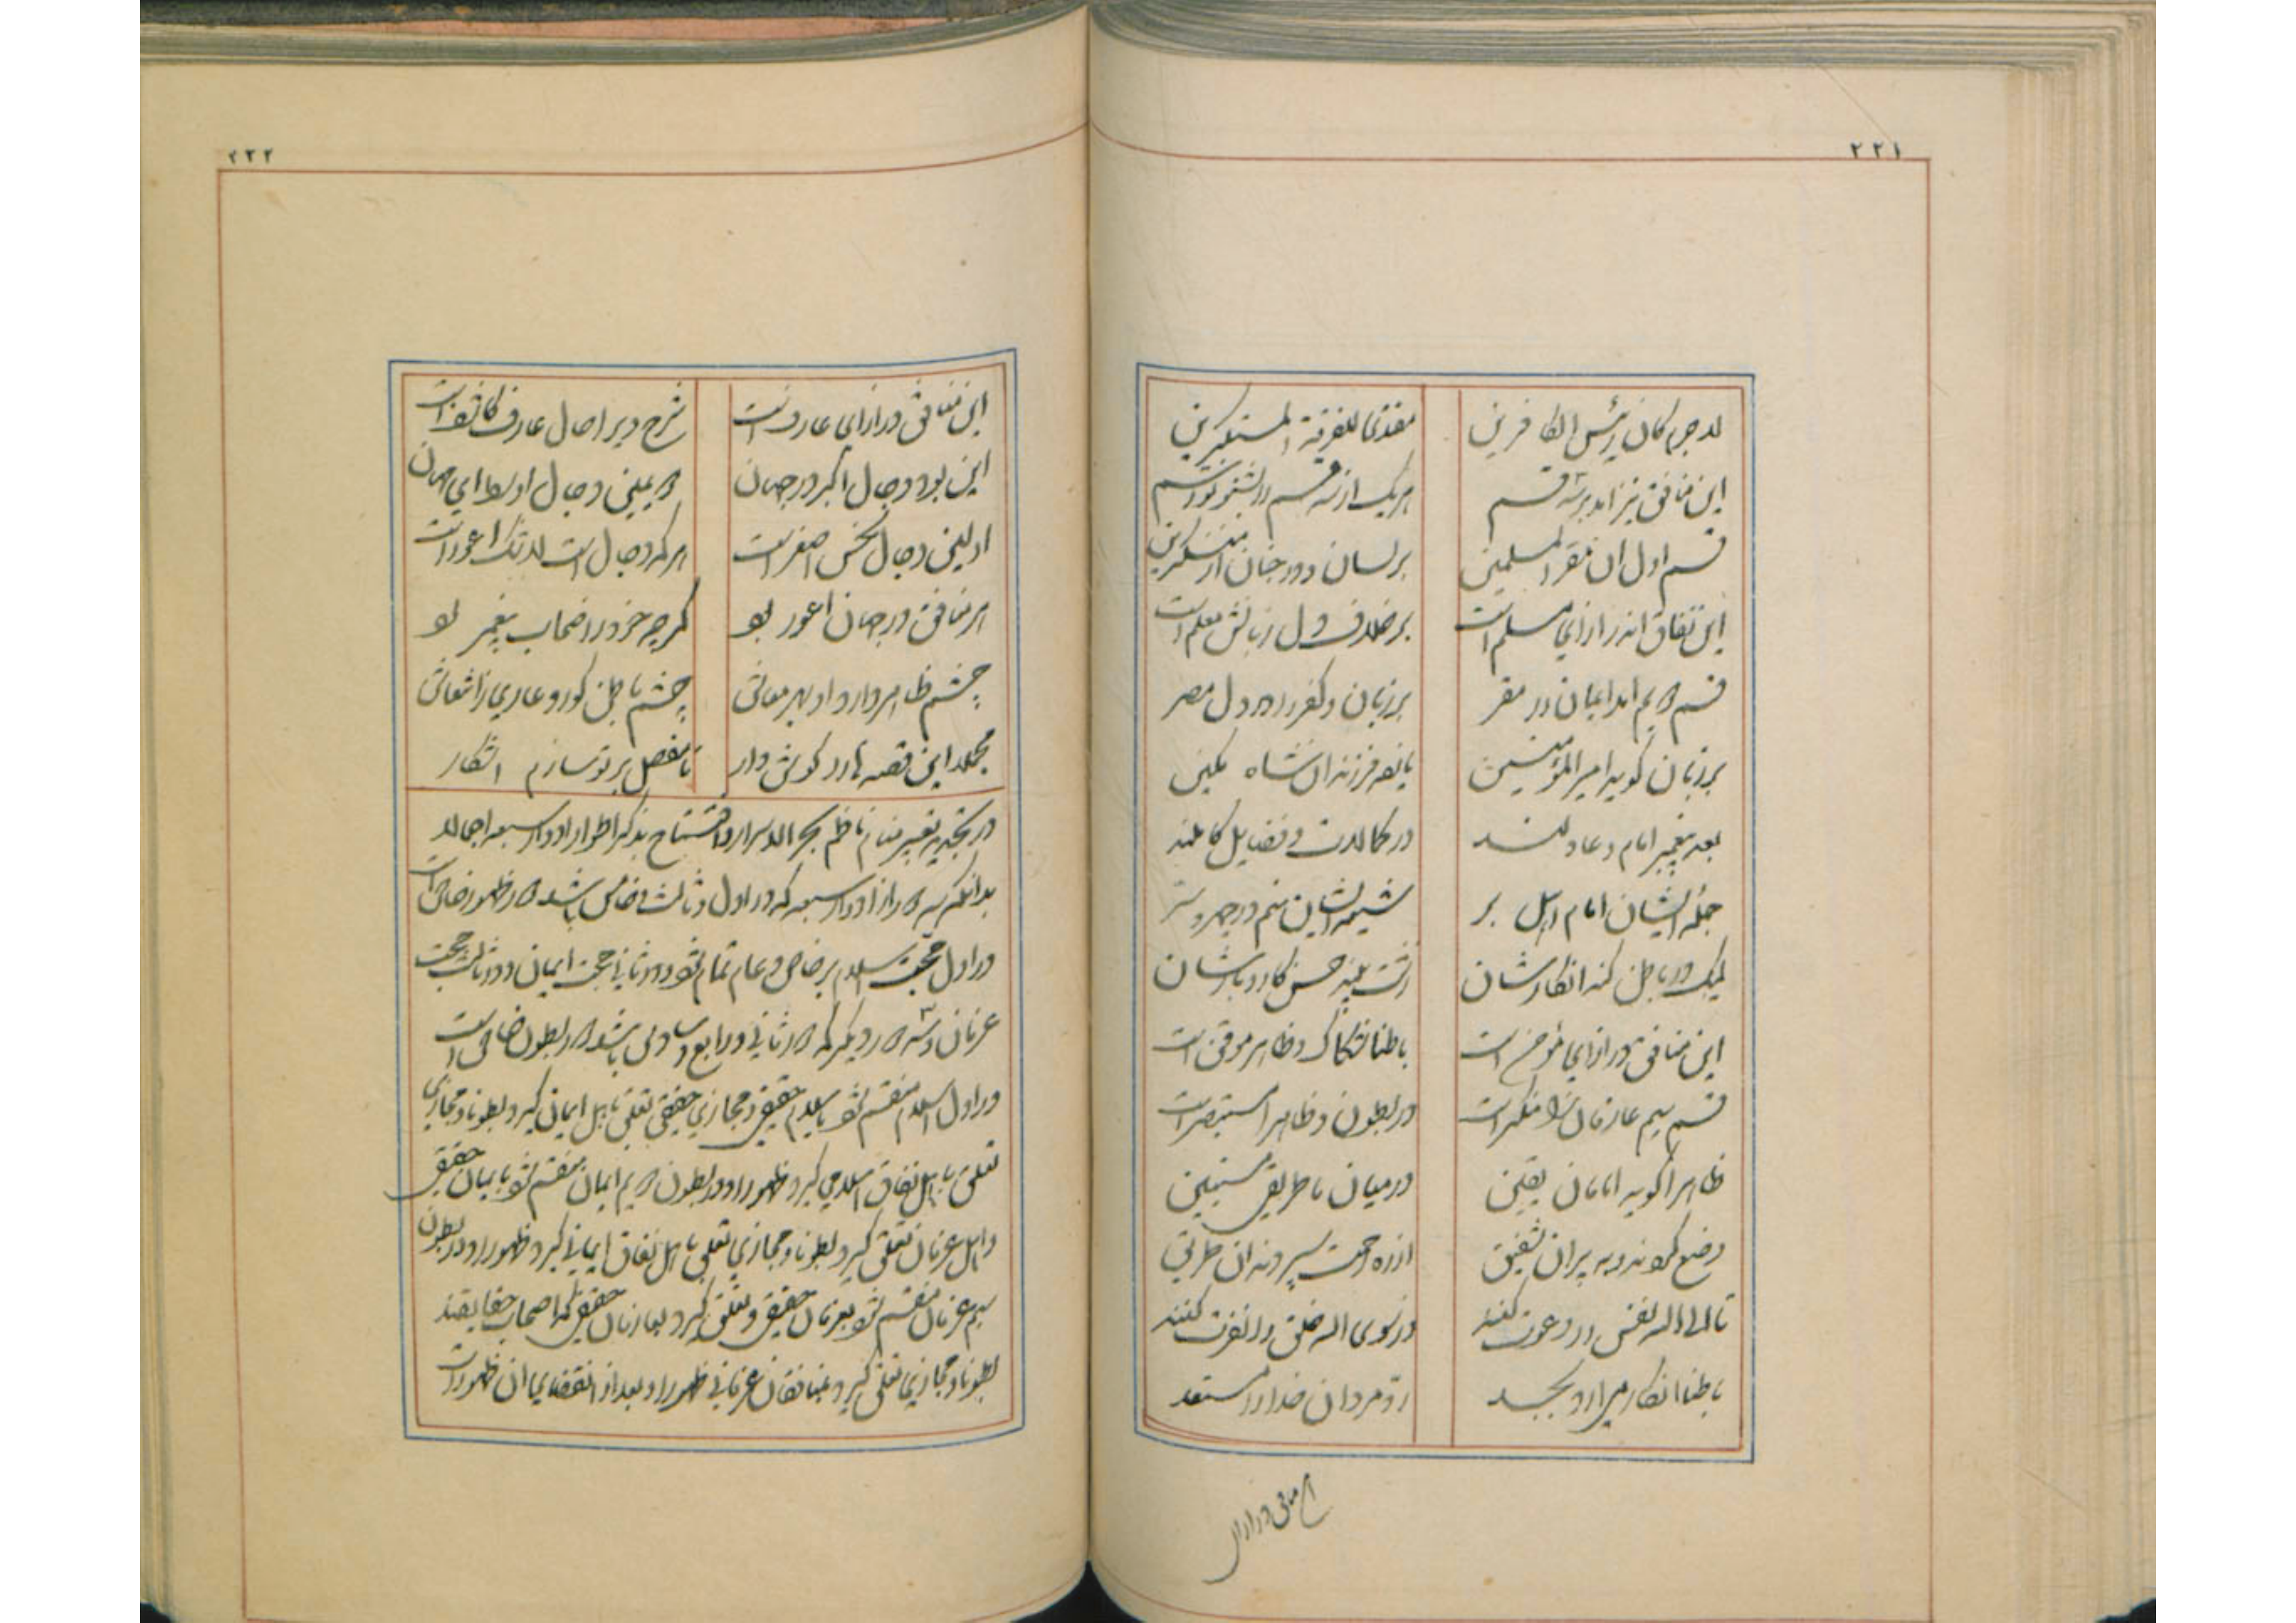 ۲۲۱
لاجرم کان رئیس الکافرین مقتدی للفرقة المستکبرین
این منافق نیز آمد بر سه قسم هر یک از سه قسم را بشنو تو اسم
قسم اول آن مقر از مسلمین بر لسان و در جنان از منکرین
این نفاق اندر ازای مسلم است بر خلاف دل زبانش معلم است
قسم دویم آمد ایمان را مقر بر زبان و کفر را در دل مصر
بر زبان گوید امیر المؤمنین با نه فرزند آن شاه مکین
بعد پیغمبر امام و عادلند در کمالات و فضایل کاملند
جمله ایشان امام اهل بر شیعه ایشان منم در جهر و سر
لیک در باطن کند انکارشان زشت بیند حسن کار و بارشان
این منافق در ازای مؤمن است باطنا شکاک و ظاهر موقن است
قسم سیم عارفان را منکر است در بطون و ظاهرا مستبصر است
ظاهرا گوید امامان یقین در میان ما طریق مستبین
وضع کردند و به پیران شفیق از ره رحمت سپردند آن طریق
تا الی الله نفس را دعوت کنند وز سوی الله خلق را نفرت کنند
باطنا انکار میآرد بجد رد مردان خدا را مستعد
این منافق در ازای
۲۲۲
این منافق در ازای عارف است شرح دیر احال عارف کاشف است
این بود دجال اکبر در جهان دویمین دجال اوسط ای مهان
اولین دجال نحس اصغر است هر که دجال است لا شک اعور است
هر منافق در جهان اعور بود گرچه خود در اصحاب پیغمبر بود
چشم ظاهر دارد او بهر معاش چشم باطن کور و عاری ز انتعاش
مجملا این قصه را رد گوش دار تا مفصل بر تو سازم آشکار
در تجدید تعبیر منام ناظم بحر الاسرار و افتتاح بذکر اطوار ادوار سبعه اجمالا
بدانکه سه دور از ادوار سبعه که دور اول و ثالث و خامس باشد دور ظهور خاص است
در اول حجت اسلام بر خاص و عام تمام شود و در ثانی حجت ایمان و در ثالث حجت
عرفان و سه دور دیگر که دور ثانی و رابع و سادس باشد دور بطون خاص است
در اول اسلام منقسم شود باسلام حقیقی و مجازی حقیقی تعلق باهل ایمان گیرد بطونا و مجازی
تعلق باهل نفاق اسلامی گیرد ظهورا و در بطون دویم ایمان منقسم شود بایمان حقیقی
و اهل عرفان تعلق گیرد بطونا و مجازی تعلق باهل نفاق ایمانی گیرد ظهورا و در بطون
سیم عرفان منقسم شود بعرفان حقیقی و تعلق گیرد بعارفان حقیقی که اصحاب حقایقند
بطونا و مجازی تعلق گیرد بمنافقان عرفانی ظهورا و بعد از انقضای آن ظهور است